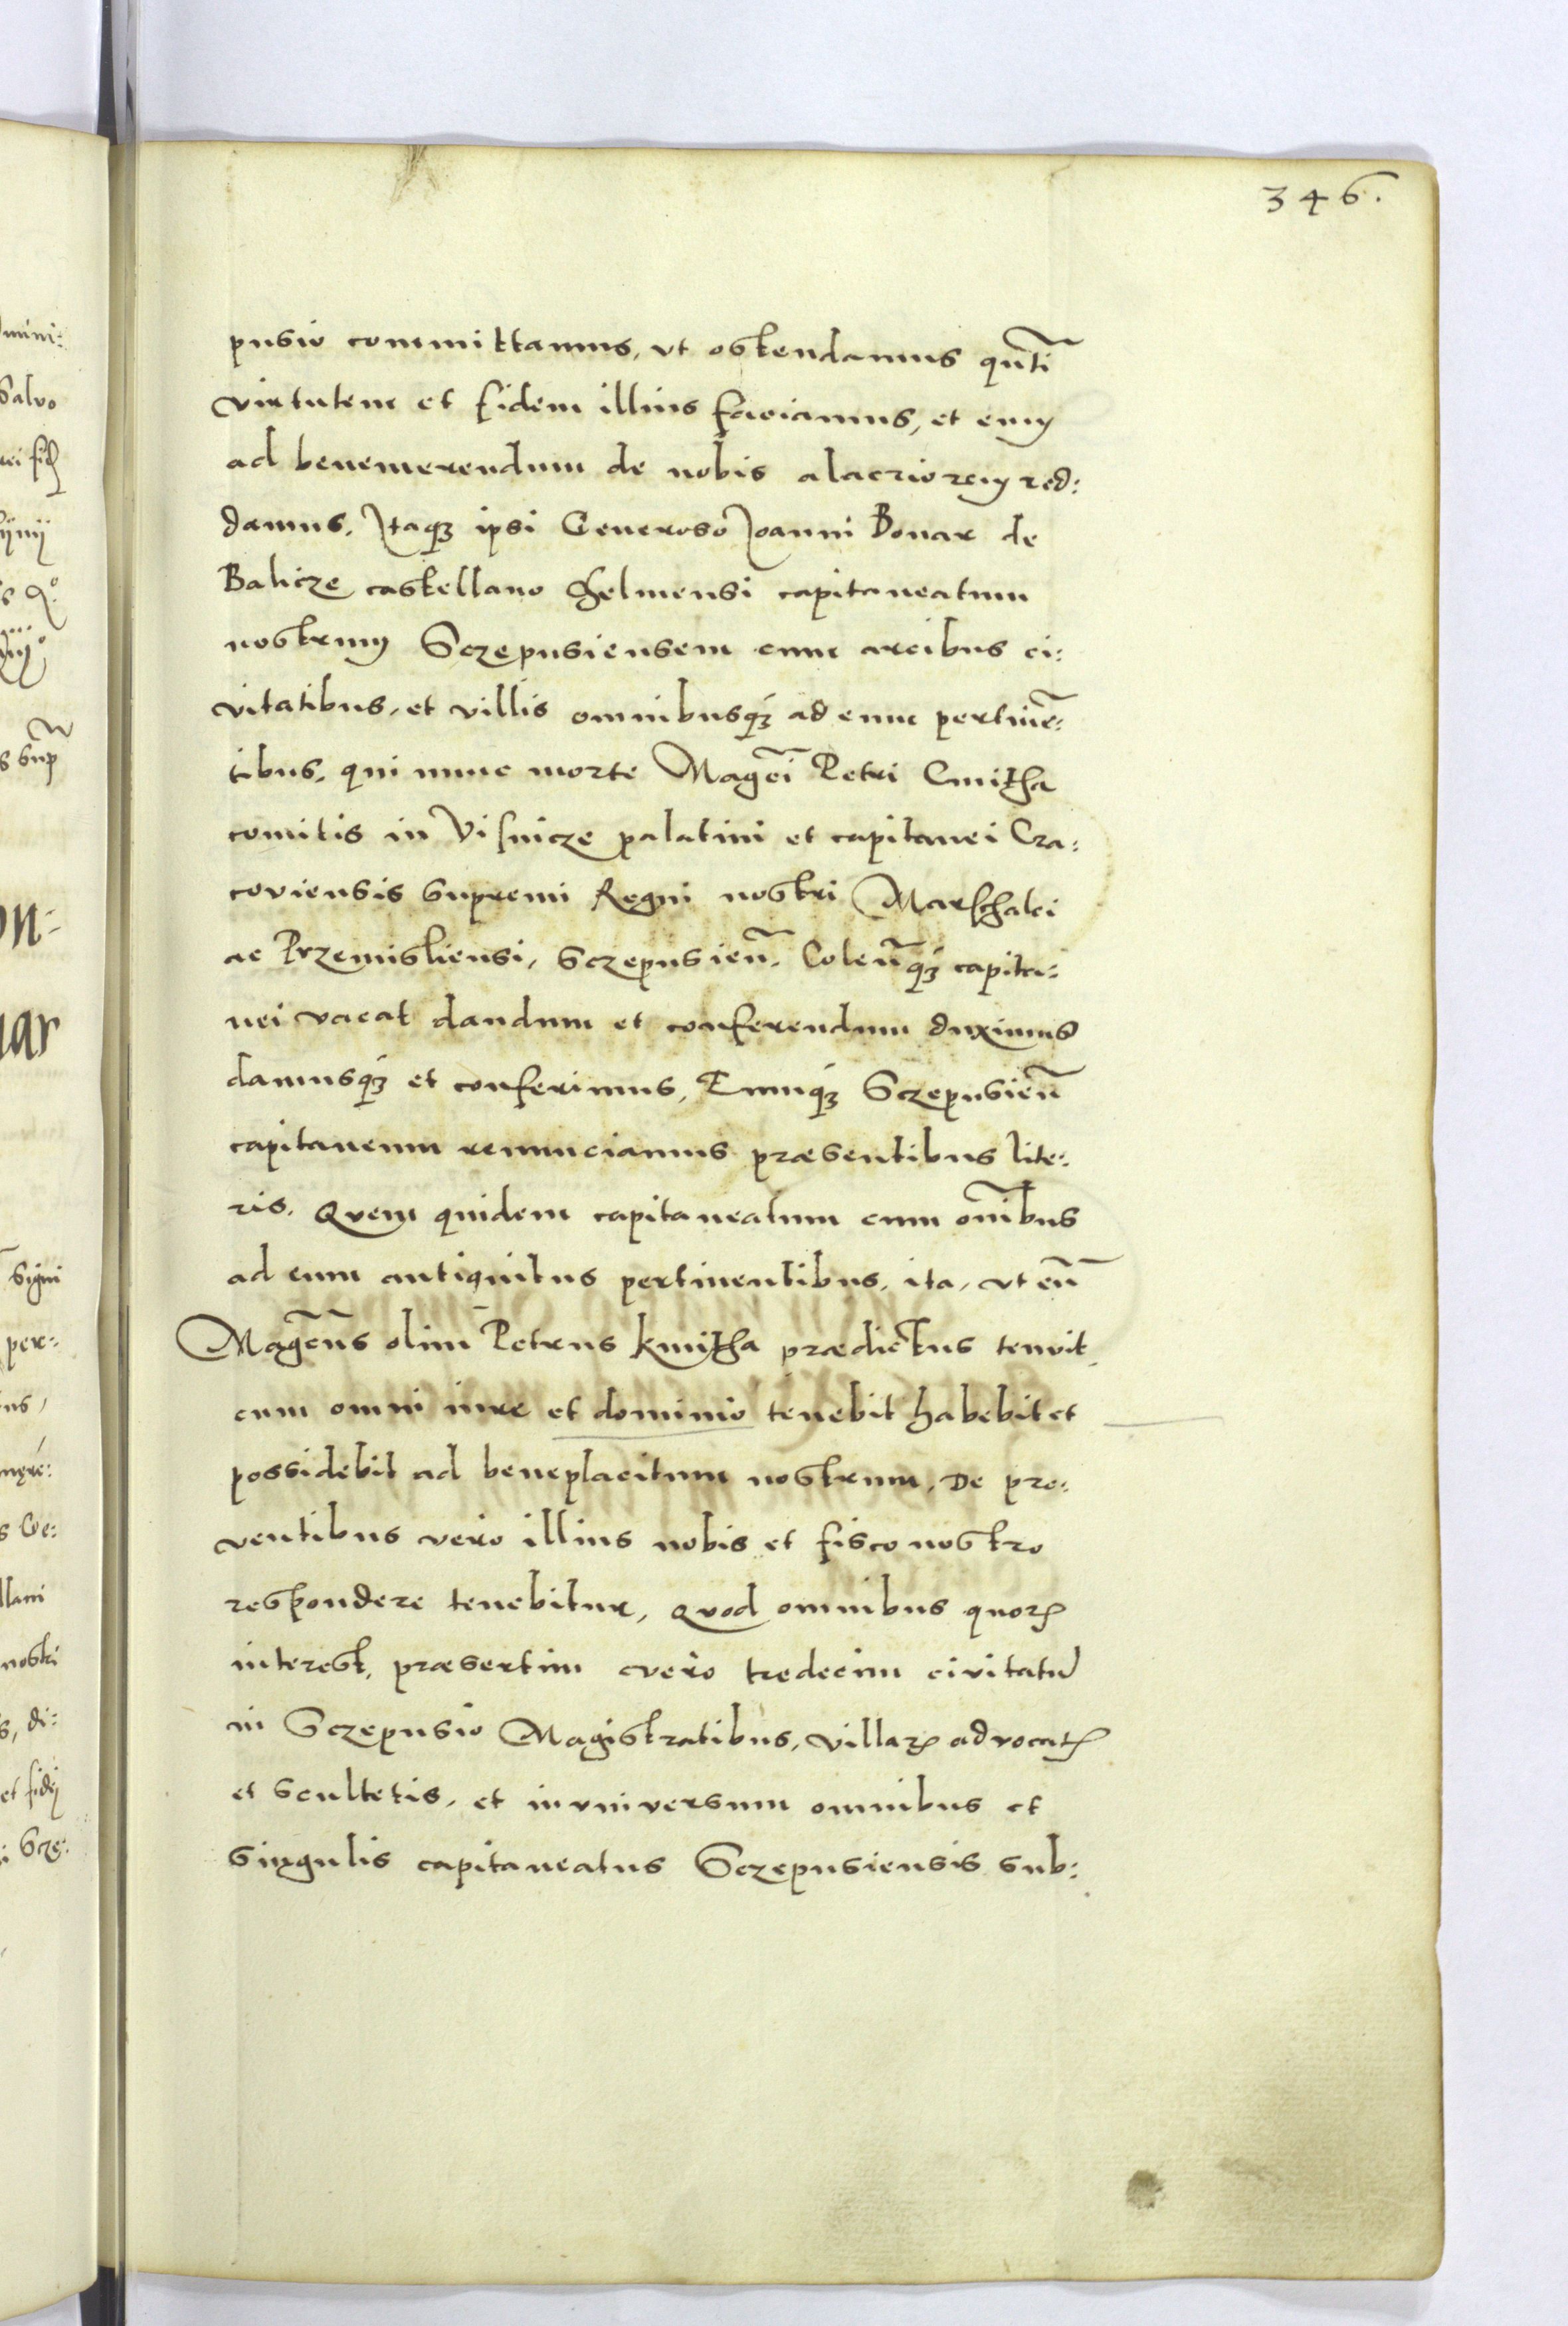 346.
pusio committamus, vt ostendamus qūti
virtutem et fidem illius faciamus, et eum
ad benemerendum de nobis alacriorem red:
damus, Itaqꝫ ipsi Generoso Joanni Bonar de
Balicze castellano Chelmensi capitaneatum
nostrum Sczepusiensem cum arcibus ci:
vitatibus, et villis omnibusqꝫ ad eum pertinē:
tibus, qui nunc morte Magcī Petri Cmitha
comitis in Visnicze palatini et capitanei Cra:
coviensis supremi Regni nostri Marschalci
ac Przemisliensi, Sczepusien̄, Colen̄qꝫ capita:
nei vacat dandum et conferendum duximus
damusqꝫ et conferimus, Eumqꝫ Sczepusien̄
capitaneum renunciamus præsentibus lite:
ris. Quem quidem capitaneatum cum om̄ibus
ad eum antiquitus pertinentibus, ita, vt eū
Magcūs olim Petrus kmitha prædictus tenuit
cum omni iure et dominio tenebit habebit et
possidebit ad beneplacitum nostrum, De pro:
ventibus vero illius nobis et fisco nostro
respondere tenebitur, Quod omnibus quoꝝ
interest, præsertim vero tredecim civitatū
in Sczepusio Magistratibus, villaꝝ advocat
et scultetis, et in vniversum omnibus et
singulis capitaneatus Sczepusiensis sub:
dmini:
Salvo
sup
on:
nar
signi
per:
nus,
s Coe:
llani
nostri
s, di:
et fidei
i Scze: